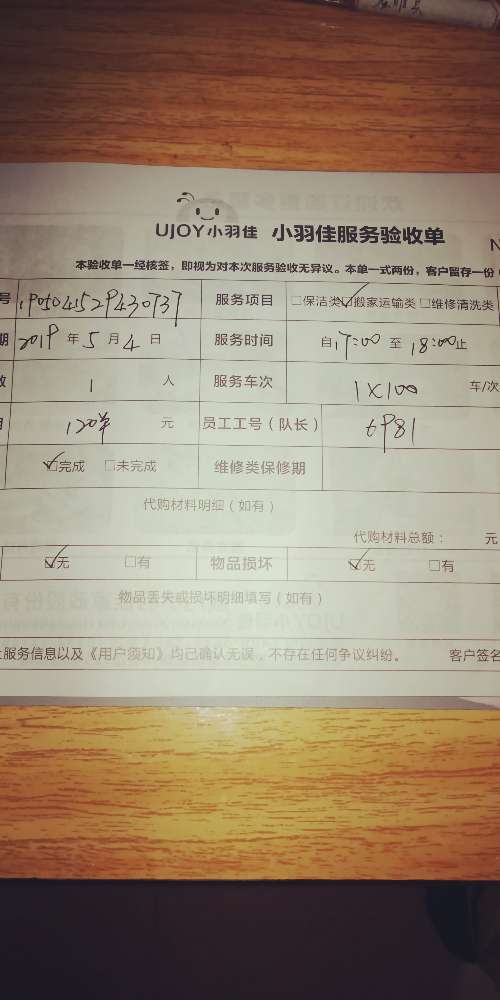 UJOY小羽佳 小羽佳服务验收单 N
本验收单一经核签，即视为对本次服务验收无异议。本单一式两份，客户留存一份
号 1905041529430737 服务项目 □保洁类 ☑搬家运输类 □维修清洗类
期 2019 年 5 月 4 日 服务时间 自 17:00 至 18:00 止
数 1 人 服务车次 1×100 车/次
用 120 元 员工工号（队长） 6981
☑完成 □未完成 维修类保修期
代购材料明细（如有）
代购材料总额： 元
☑无 □有 物品损坏 ☑无 □有
物品丢失或损坏明细填写（如有）
上服务信息以及《用户须知》均已确认无误，不存在任何争议纠纷。 客户签名